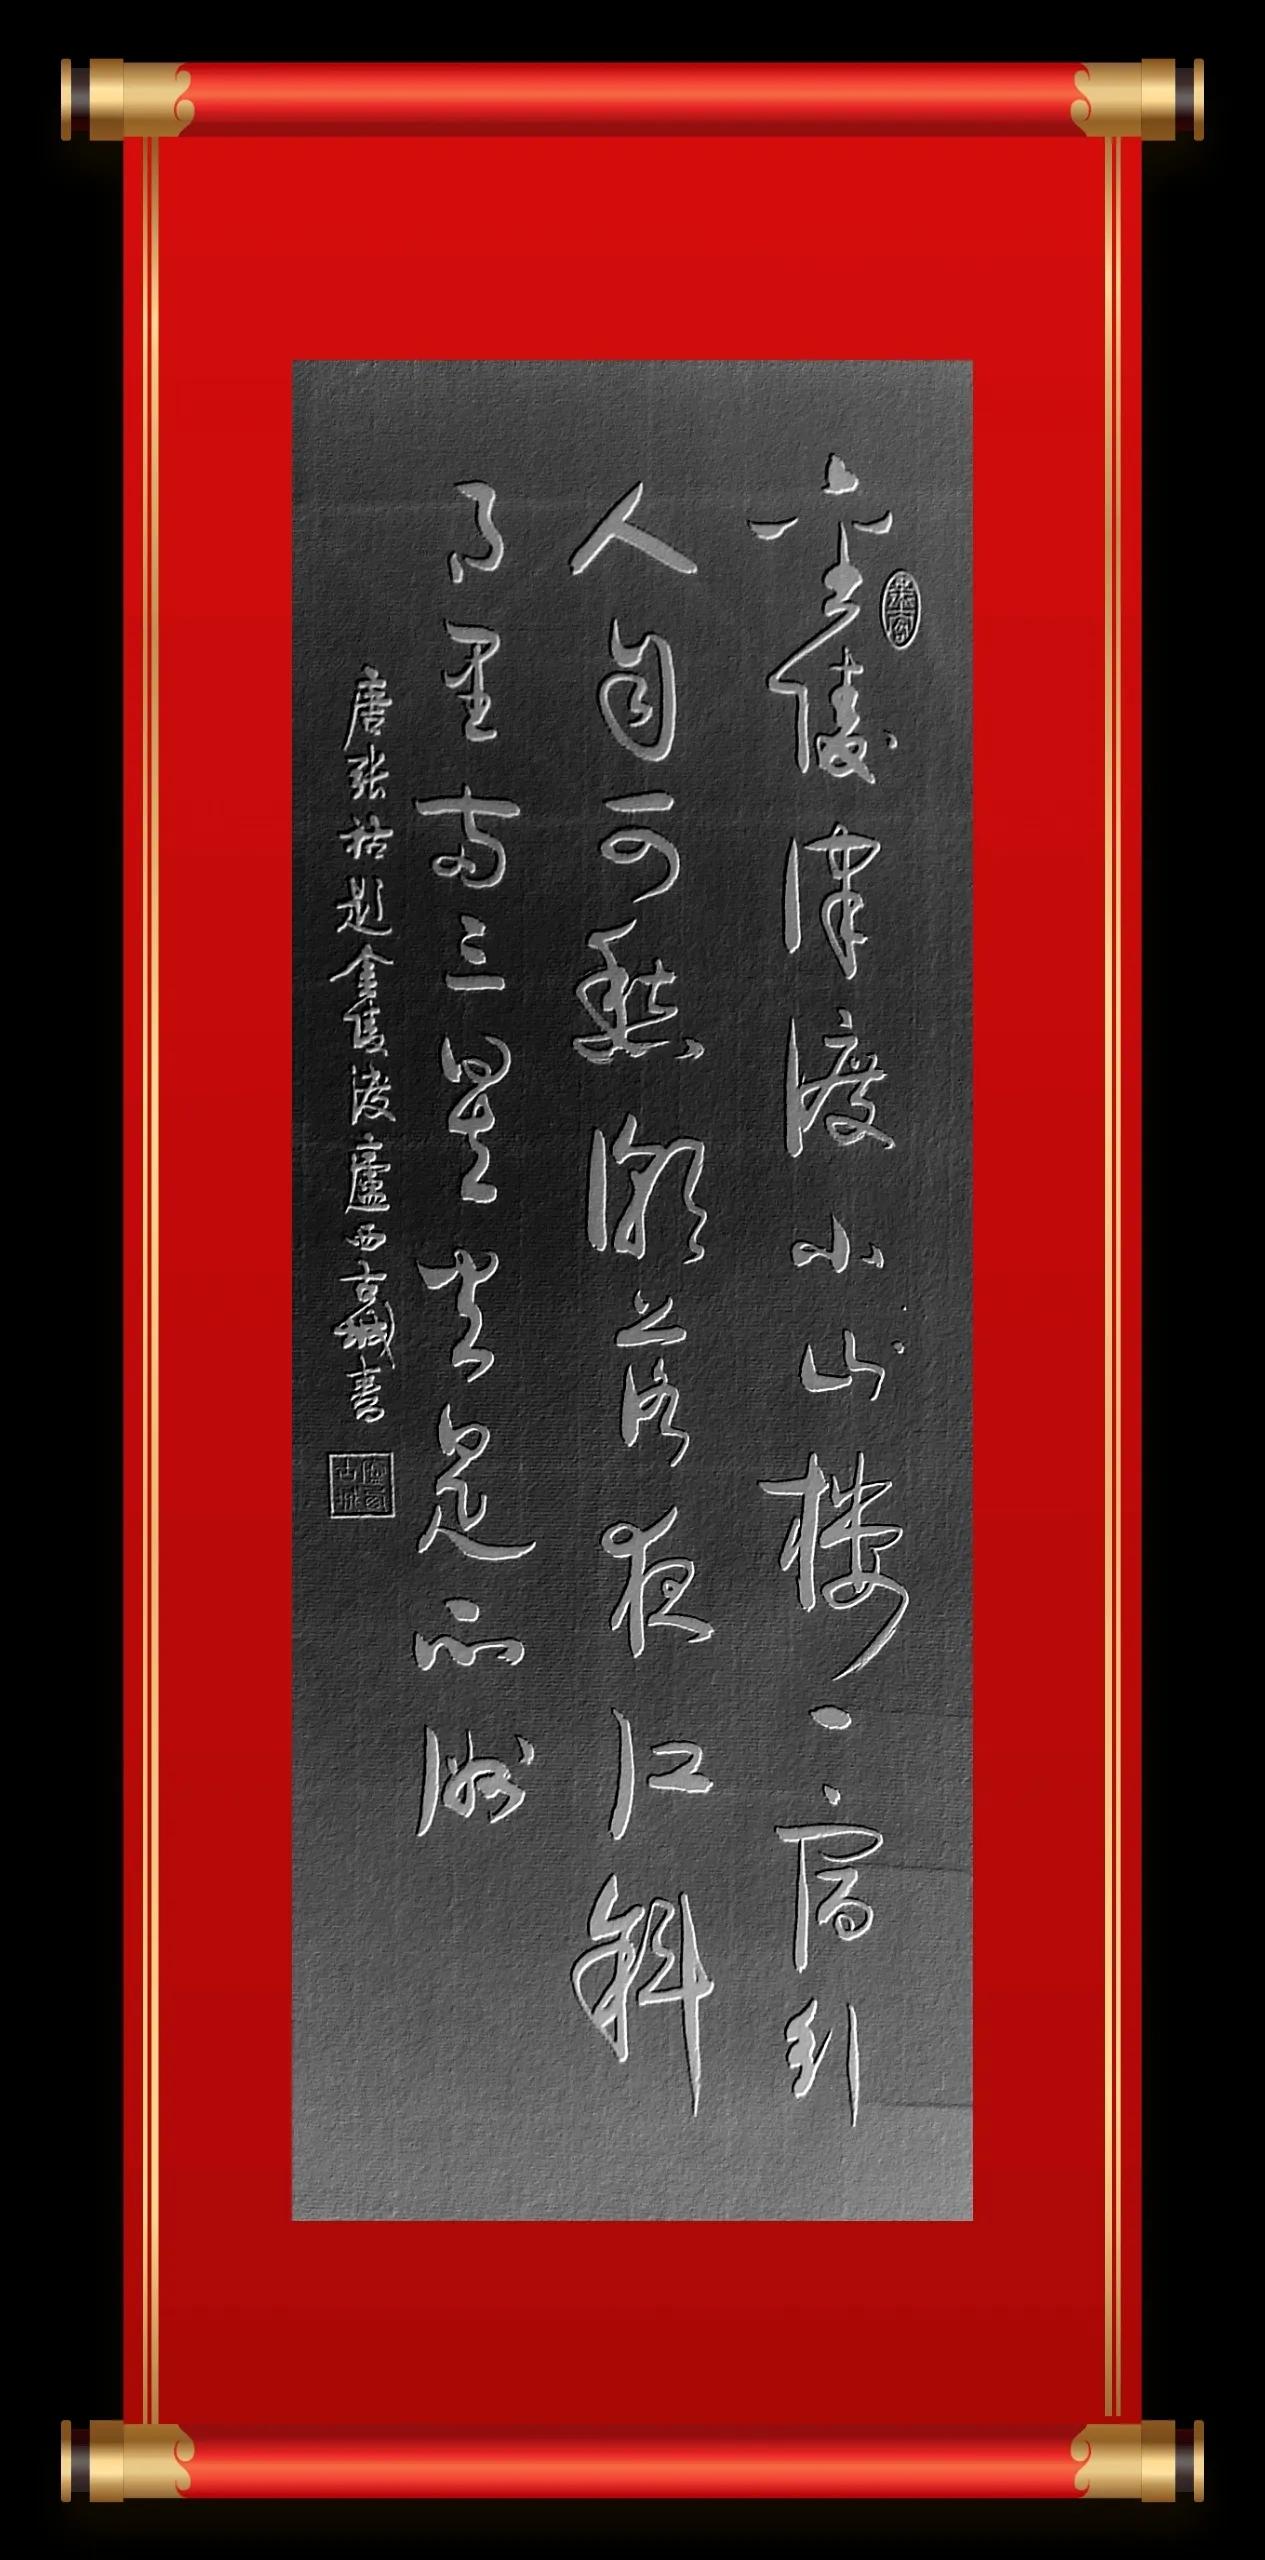 金陵津渡小山樓一宿行
人自可愁潮落夜江斜
月里兩三星火是瓜洲
唐張祜題金陵渡廬西古城書